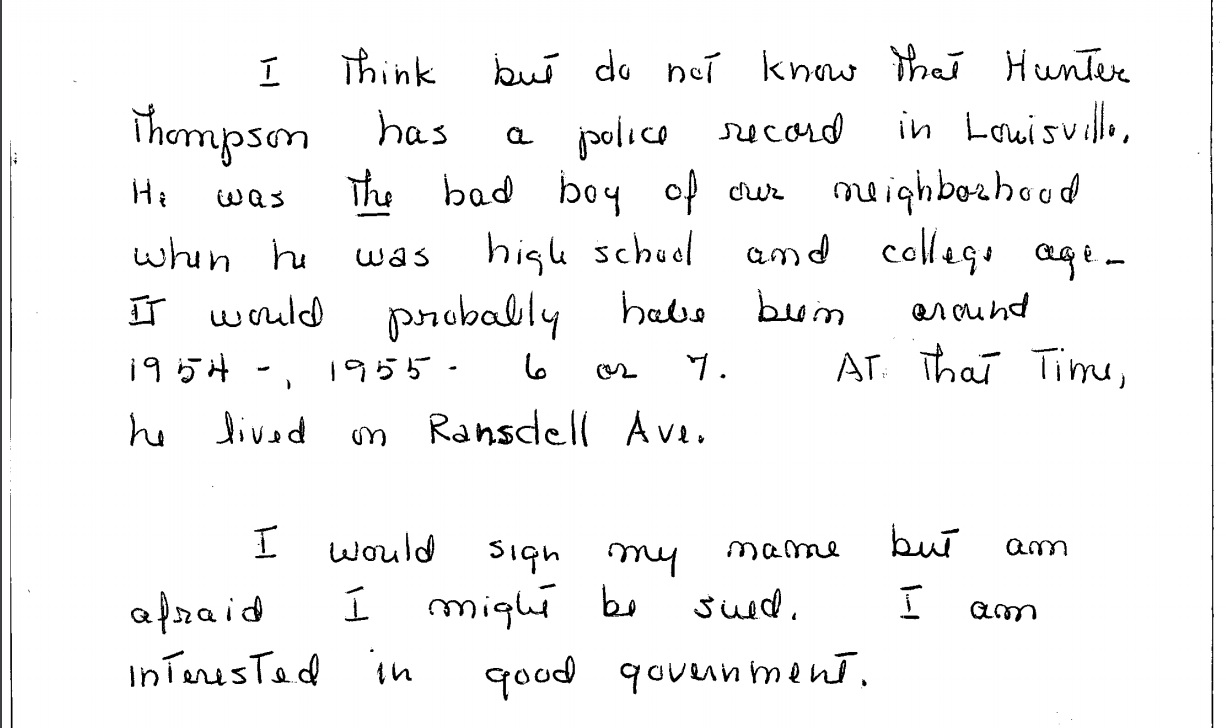 I think but do not know that Hunter
Thompson has a police record in Louisville.
He was the bad boy of our neighborhood
when he was high school and college age -
It would probably have been around
1954 -, 1955 - 6 or 7. At that Time,
he lived on Ransdell Ave.
I would sign my name but am
afraid I might be sued. I am
interested in good government.